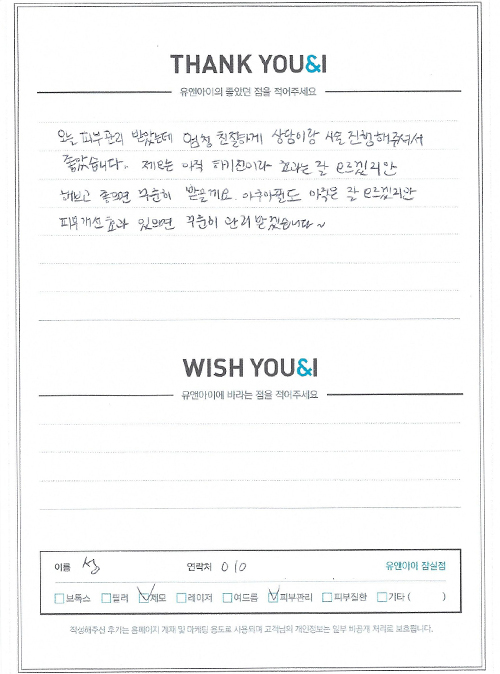 THANK YOU&I
유앤아이의 좋았던 점을 적어주세요
오늘 피부관리 받았는데 엄청 친절하게 상담이랑 시술 진행해주셔서
좋았습니다. 제모는 아직 1회차이라 효과는 잘 모르겠지만
해보고 좋으면 꾸준히 받을게요. 아쿠아필도 아직은 잘 모르겠지만
피부개선 효과 있으면 꾸준히 관리 받겠습니다~
WISH YOU&I
유앤아이에 바라는 점을 적어주세요
이름 연락처 010 유앤아이 잠실점
보톡스 필러 제모 레이저 여드름 피부관리 피부질환 기타 ( )
작성해주신 후기는 홈페이지 게재 및 마케팅 용도로 사용되며 고객님의 개인정보는 일부 비공개 처리로 보호됩니다.